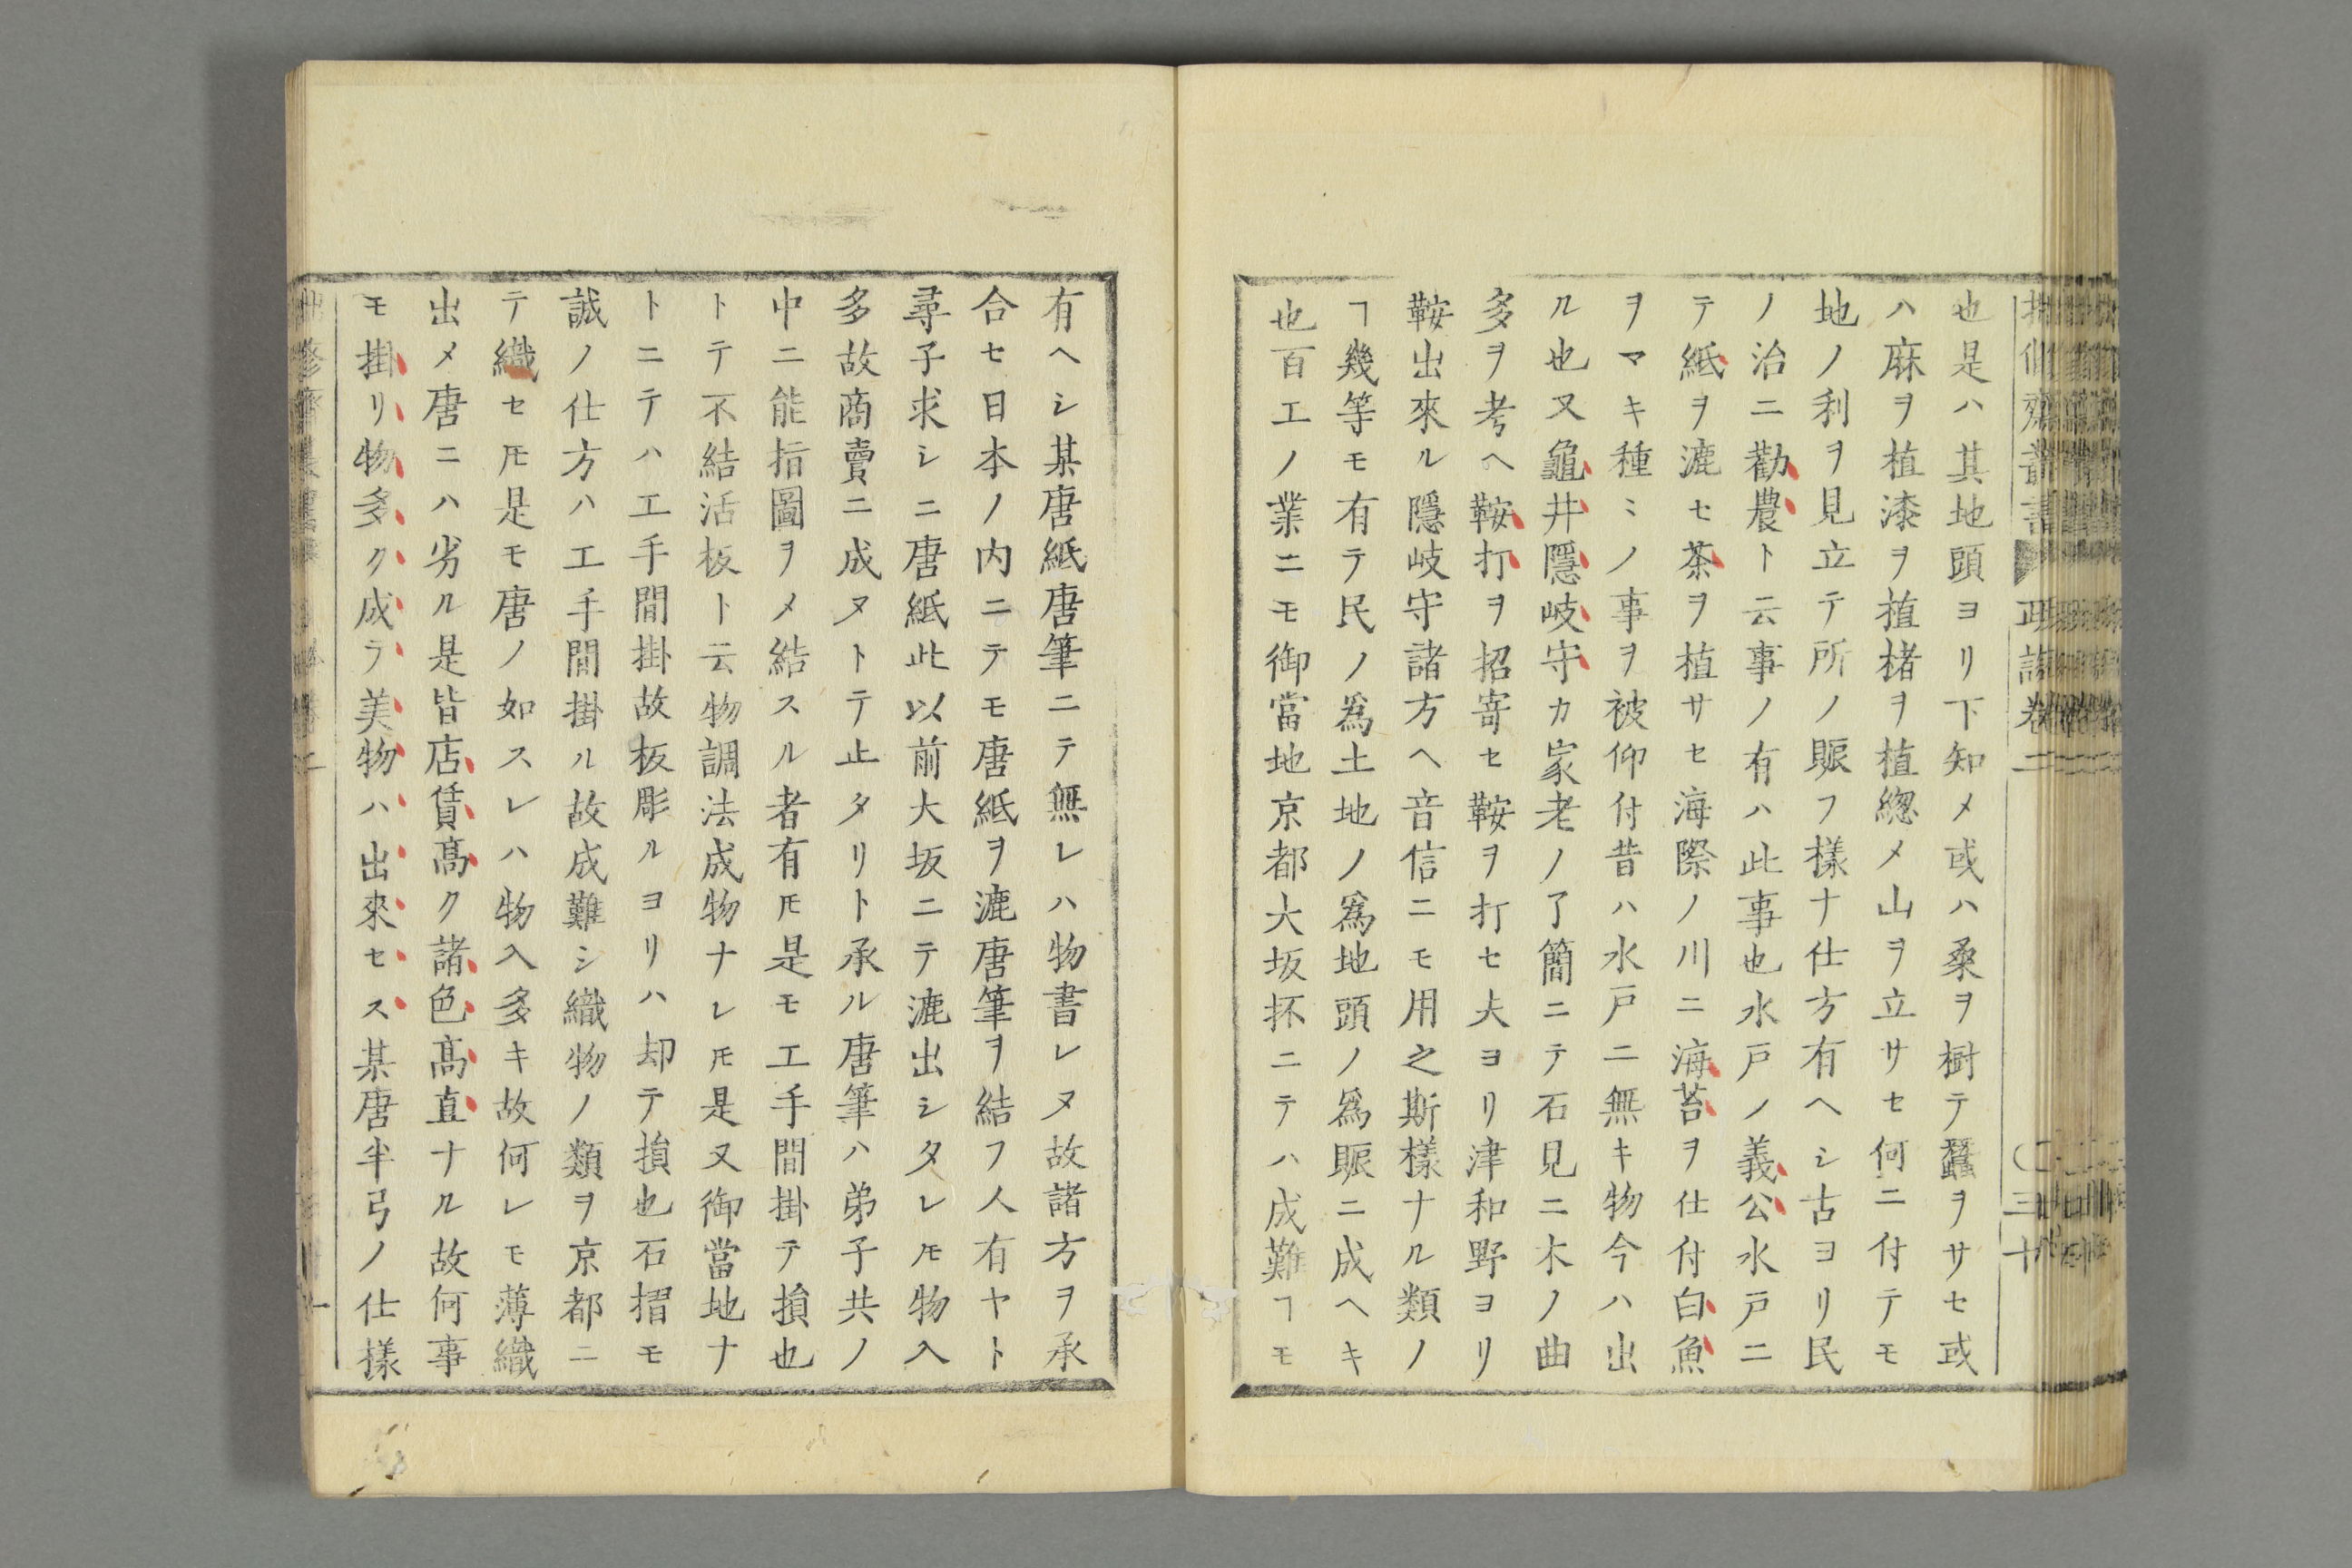 政談卷二
〇三十
也是ハ其地頭ヨリ下知メ或ハ桑ヲ樹テ蠶ヲサセ或
ハ麻ヲ植漆ヲ植楮ヲ植總メ山ヲ立サセ何ニ付テモ
地ノ利ヲ見立テ所ノ賑フ樣ナ仕方有ヘシ古ヨリ民
ノ治ニ勸農ト云事ノ有ハ此事也水戸ノ義公水戸ニ
テ紙ヲ漉セ茶ヲ植サセ海際ノ川ニ海苔ヲ仕付白魚
ヲマキ種ミノ事ヲ被仰付昔ハ水戸ニ無キ物今ハ出
ル也又龜井隱岐守カ家老ノ了簡ニテ石見ニ木ノ曲
多ヲ考ヘ鞍打ヲ招寄セ鞍ヲ打セ夫ヨリ津和野ヨリ
鞍出來ル隱岐守諸方ヘ音信ニモ用之斯樣ナル類ノ
ヿ幾等モ有テ民ノ爲土地ノ爲地頭ノ爲賑ニ成ヘキ
也百工ノ業ニモ御當地京都大坂抔ニテハ成難ヿモ
有ヘシ某唐紙唐筆ニテ無レハ物書レヌ故諸方ヲ承
合セ日本ノ内ニテモ唐紙ヲ漉唐筆ヲ結フ人有ヤト
尋子求シニ唐紙此以前大坂ニテ漉出シタレ𪜈物入
多故商賣ニ成ヌトテ止タリト承ル唐筆ハ弟子共ノ
中ニ能指圖ヲメ結スル者有𪜈是モ工手間掛テ損也
トテ不結活板ト云物調法成物ナレ𪜈是又御當地ナ
トニテハ工手間掛故板彫ルヨリハ却テ損也石摺モ
誠ノ仕方ハ工手間掛ル故成難シ織物ノ類ヲ京都ニ
テ織セ𪜈是モ唐ノ如スレハ物入多キ故何レモ薄織
出メ唐ニハ劣ル是皆店賃高ク諸色高直ナル故何事
モ掛リ物多ク成ラ美物ハ出來セス某唐半弓ノ仕樣